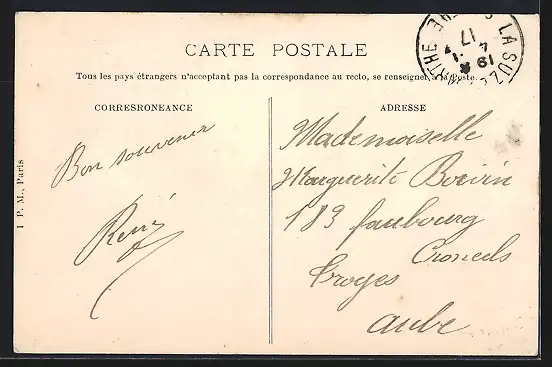 CARTE POSTALE
Tous les pays étrangers n'acceptant pas la correspondance au recto, se renseigner à la Poste.
CORRESRONEANCE
ADRESSE
Bon souvenir
René
Mademoiselle
Marguerite Boivin
183 faubourg
Croncels
Troyes
Aube
I P. M., Paris
LA SUZE